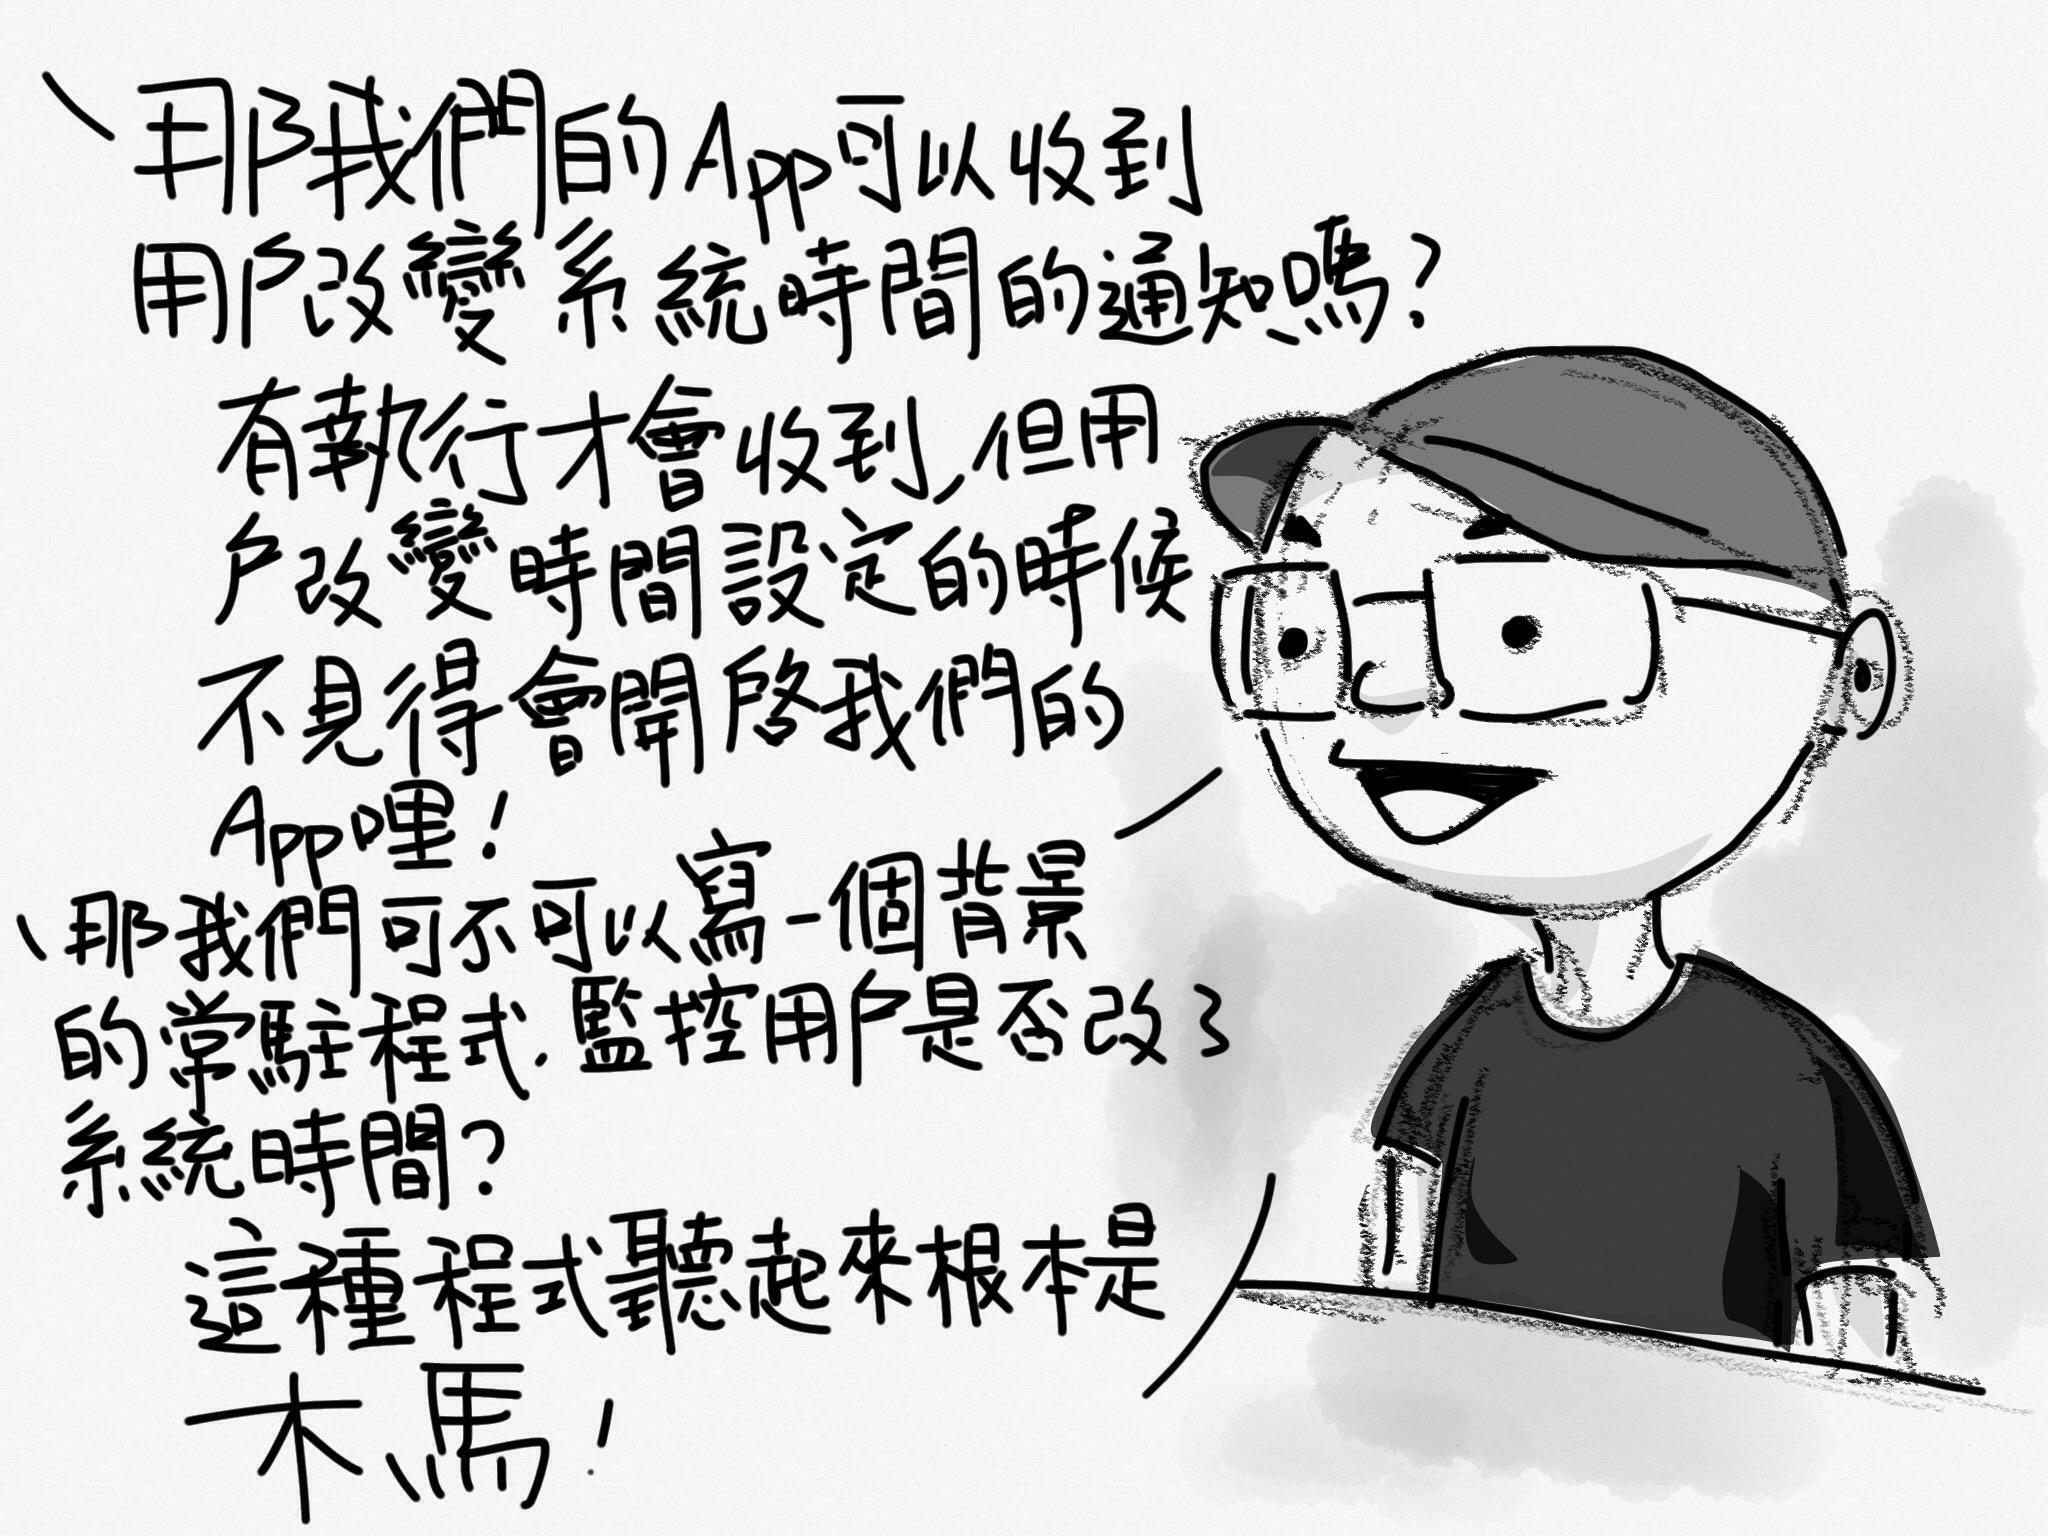 那我們的App可以收到
用戶改變系統時間的通知嗎?
有執行才會收到,但用
戶改變時間設定的時候
不見得會開啓我們的
App哩!
那我們可不可以寫一個背景
的常駐程式,監控用戶是否改了
系統時間?
這種程式聽起來根本是
木馬!